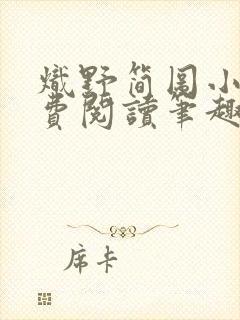 熾野简圉小
費閱讀筆趣
席卡